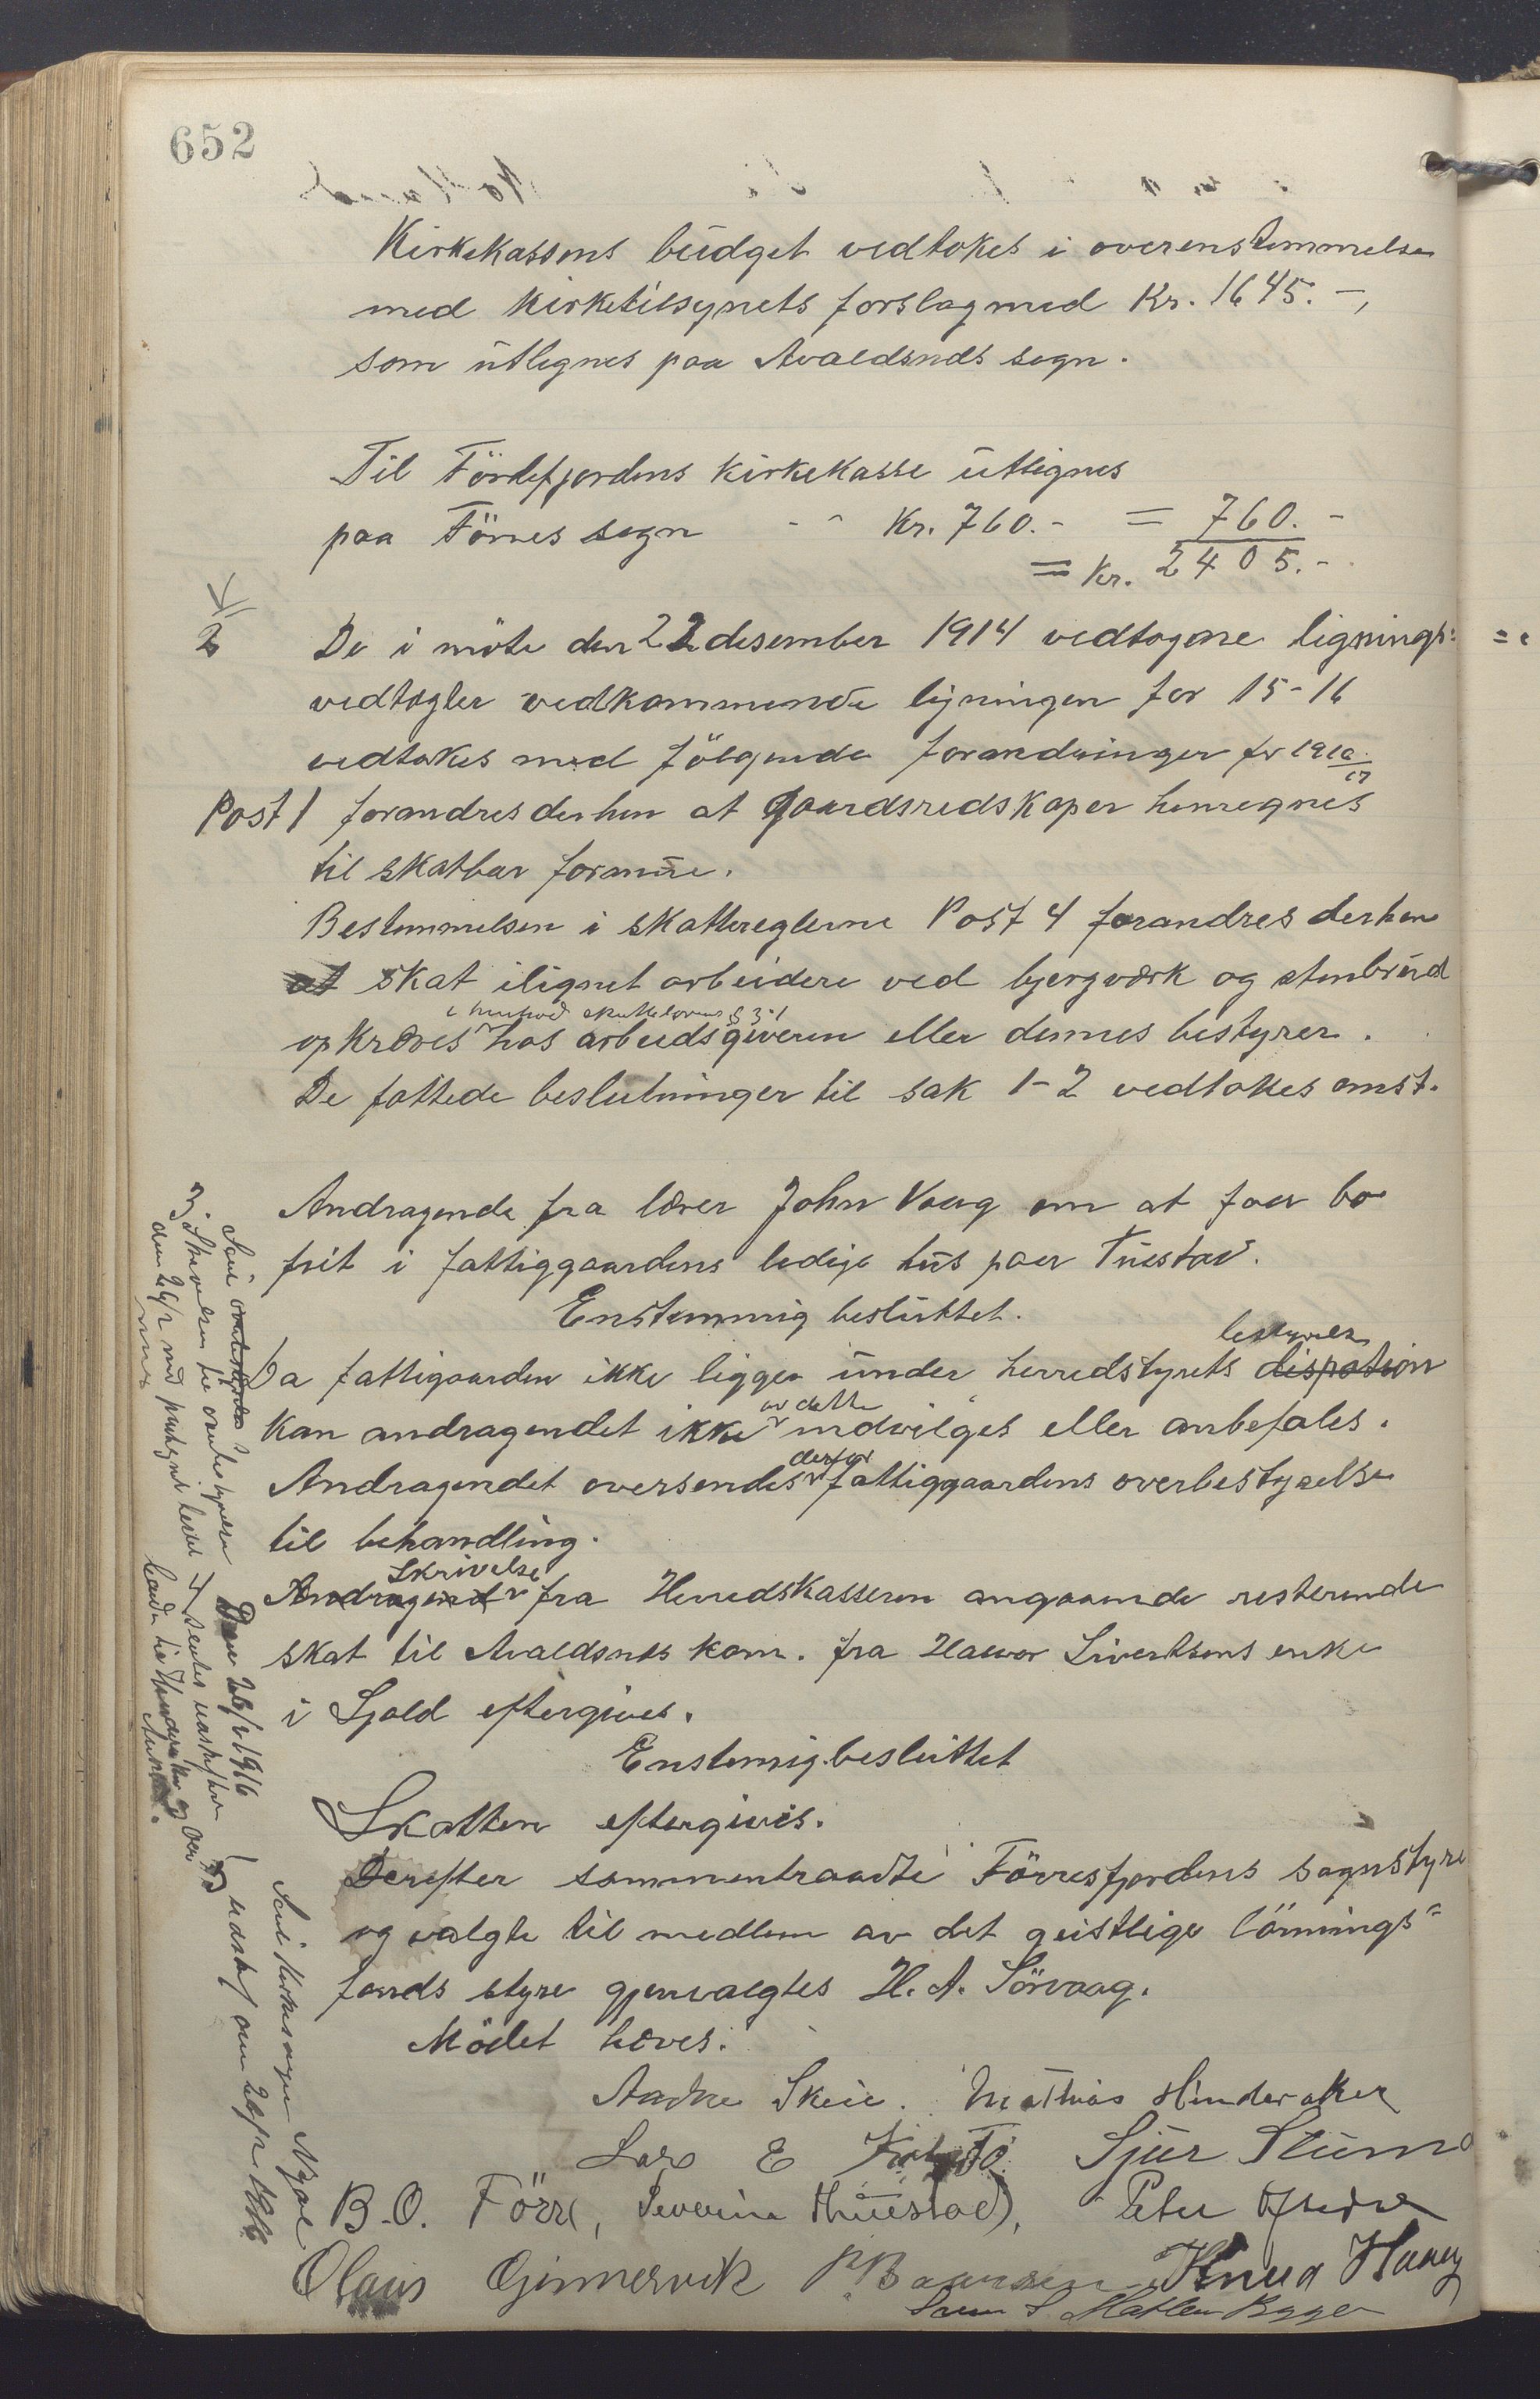 652
Kirkekassens budget vedtokes i overenstemmelse
med kirketilsynets forslag med Kr. 1645.-,
som utlignes paa Avaldsnds sogn.
Til Fördefjordens kirkekasse utlignes
paa Förres sogn - - Kr. 760.- = 760.-
= Kr. 2405.-
2 De i möte den 22 desember 1914 vedtagne lignings=
vedtægter vedkommende ligningen for 15-16
vedtokes med fölgende forandringer for 1916/17
Post 1 forandres derhen at gaardsredskaper henregnes
til skatbar formue.
Bestemmelsen i skattereglerne Post 4 forandres derhen
at skat ilignet arbeidere ved bjergværk og stenbrud
i henhold skatteloven § 31
opkræves hos arbeidsgiveren eller dennes bestyrer.
De fattede beslutninger til sak 1-2 vedtokes enst.
3. Andragende fra lærer John Vaag om at faa bo
frit i fattiggaardens ledige hus paa Tuestad.
Enstemmig besluttet.
bestyrelse
Da fattigaarden ikke ligger under herredstyrets dispotion
av dette
kan andragendet ikke indvilges eller anbefales.
derfor
Andragendet oversendes fattiggaardens overbestyrelse
til behandling.
Skrivelse
4 Andragend fra Herredskasseren angaaende resterende
skat til Avaldsnes kom. fra Halvor Sivertsens enke
i Sjold eftergives.
Enstemig besluttet
Skatten eftergives.
Derefter sammentraadte Förresfjordens sognstyre
og valgte til medlem av det geistlige lönnings=
fonds styre gjenvalgtes H. A. Sörvaag.
Mödet hæves.
Skeie. Mathias Hinderaker
Lars E Sjur Stumo
B. O. Förre, Severin Thuestad, Peter
Olaus Gjinnervik Knud
Den 26/2 1916